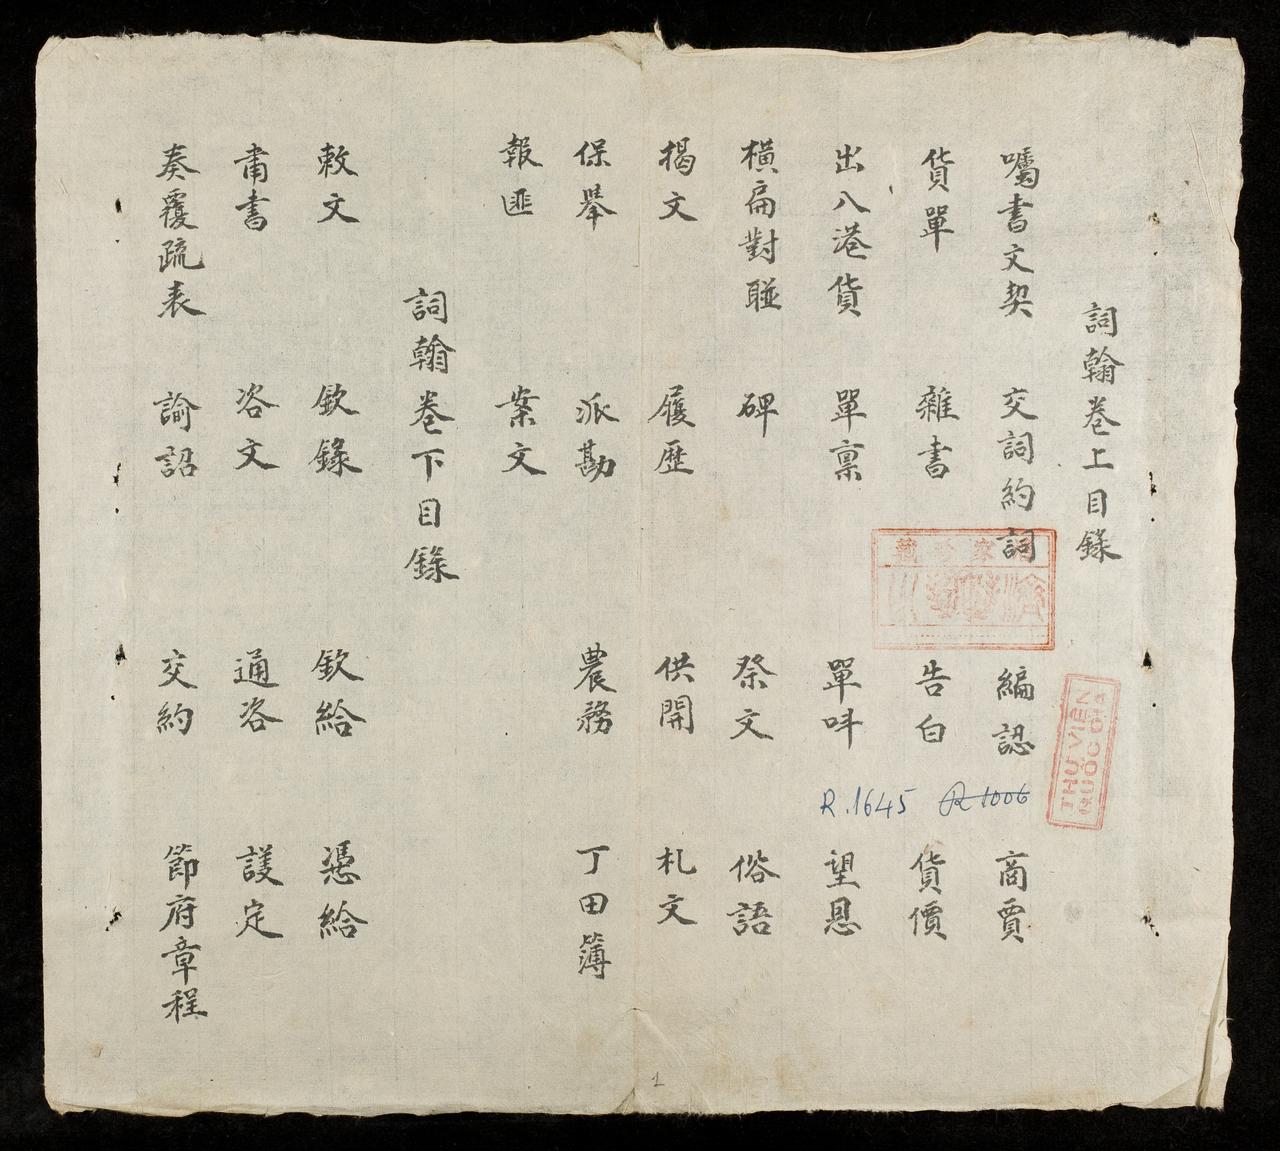 詞翰卷上目錄
囑書文契 交詞約詞 編認 商賈
貨單 雜書 告白 貨價
出入港貨 單禀 單呌 望恩
橫扁對聯 碑 祭文 俗語
揭文 履歷 供開 札文
保舉 派勘 農務 丁田簿
報匪 案文
詞翰卷下目錄
敕文 欽錄 欽給 憑給
書 咨文 通咨 護定
奏覆疏表 諭詔 交約 節府章程
THƯ VIỆN
QUỐC GIA
R.1645 R 1006
1